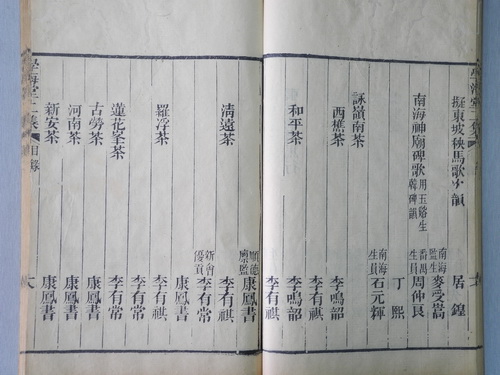 擬東坡秧馬歌次韻 居鍠
南海監生 麥受嵩
南海神廟碑歌 用玉谿生韓碑韻 番禺生員 周仲良
丁熙
南海生員 石元輝
詠嶺南茶
西樵茶 李鳴韶
李有祺
和平茶 李鳴韶
李有祺
順德廩監 康鳳書
清遠茶 李有祺
新會優貢 李有常
康鳳書
羅浮茶 李有祺
李有常
蓮花峯茶 李有常
古勞茶 康鳳書
河南茶 康鳳書
新安茶 康鳳書
學海堂二集 目錄 六